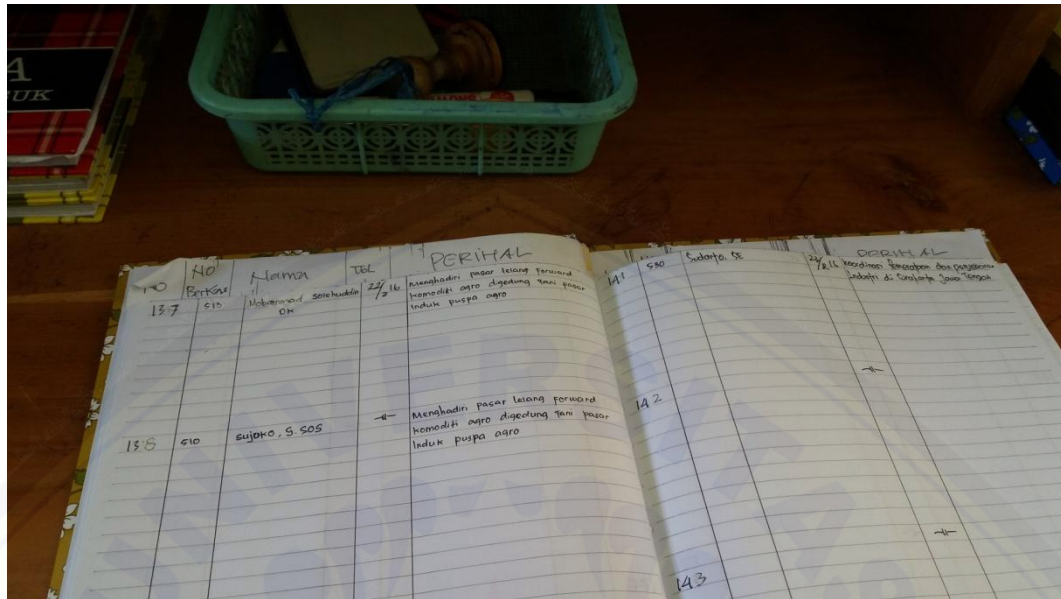 A
UK
NO
NO
Berkas
Nama
TGL
PERIHAL
137
510
Mohammad
OK
22/2 16
Menghadiri pasar lelang forward
komoditi agro digedung Tani pasar
Induk puspa agro
138
510
Sujoko, S.SOS
-"-
Menghadiri pasar lelang forward
komoditi agro digedung Tani pasar
Induk puspa agro
PERIHAL
141
530
SE
22/2 16
di Surakarta Jawa Tengah
142
-"-
143
-"-
UNIVERSITA